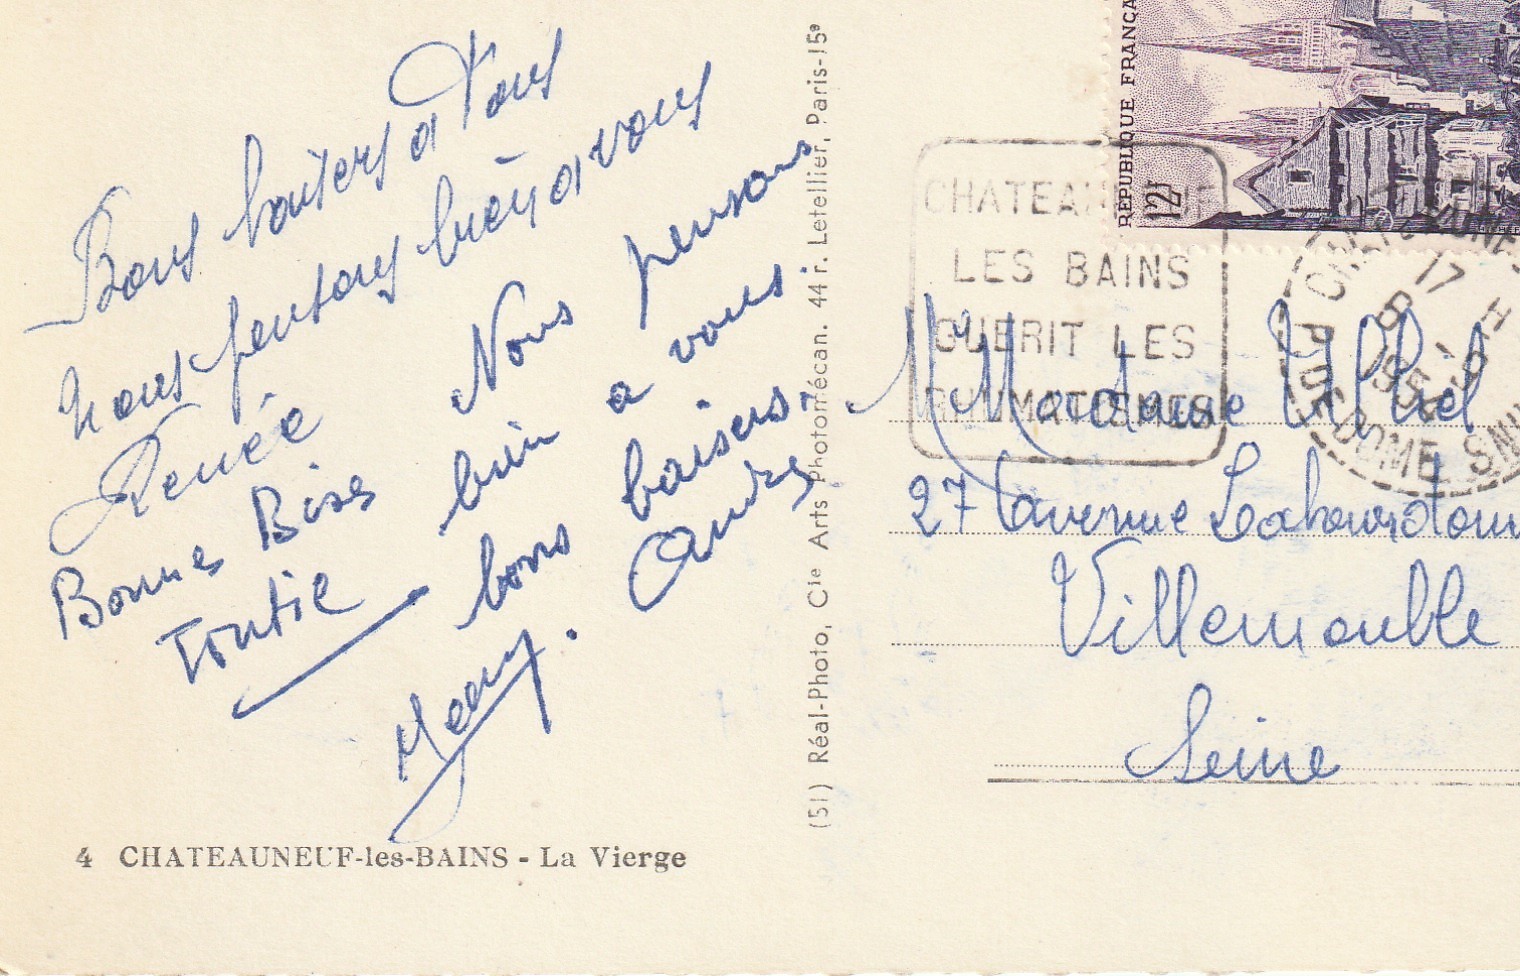 Bons baisers a Tous
nous pensons bien a vous
Renée
Bonnes Bises
Tontie
Nous pensons
bien a vous
bons baisers.
André
4 CHATEAUNEUF-les-BAINS - La Vierge
(51) Réal-Photo, Cie Arts Photomécan. 44 r. Letellier, Paris-15e
REPUBLIQUE FRANÇA
12F
CHATEAUNEUF
LES BAINS
GUERIT LES
RHUMATISMES
17 H
1954
PUY DE DOME
Madame
27 avenue
Villemomble
Seine